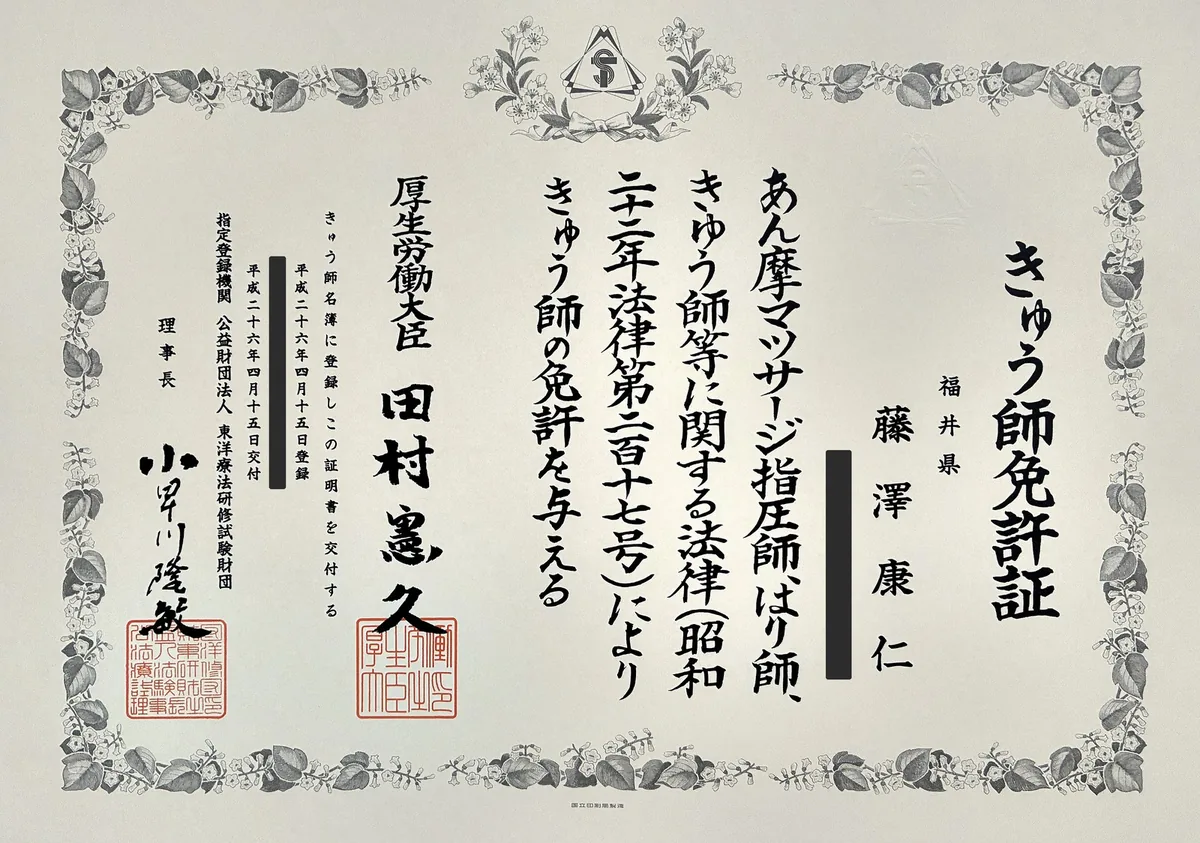 きゅう師免許証
福井県
藤澤康仁
あん摩マツサージ指圧師、はり師、
きゆう師等に関する法律(昭和
二十二年法律第二百十七号)により
きゅう師の免許を与える
厚生労働大臣 田村憲久
きゅう師名簿に登録しこの証明書を交付する
平成二十六年四月十五日登録
平成二十六年四月十五日交付
指定登録機関 公益財団法人 東洋療法研修試験財団
理事長 小早川隆敏
国立印刷局製造